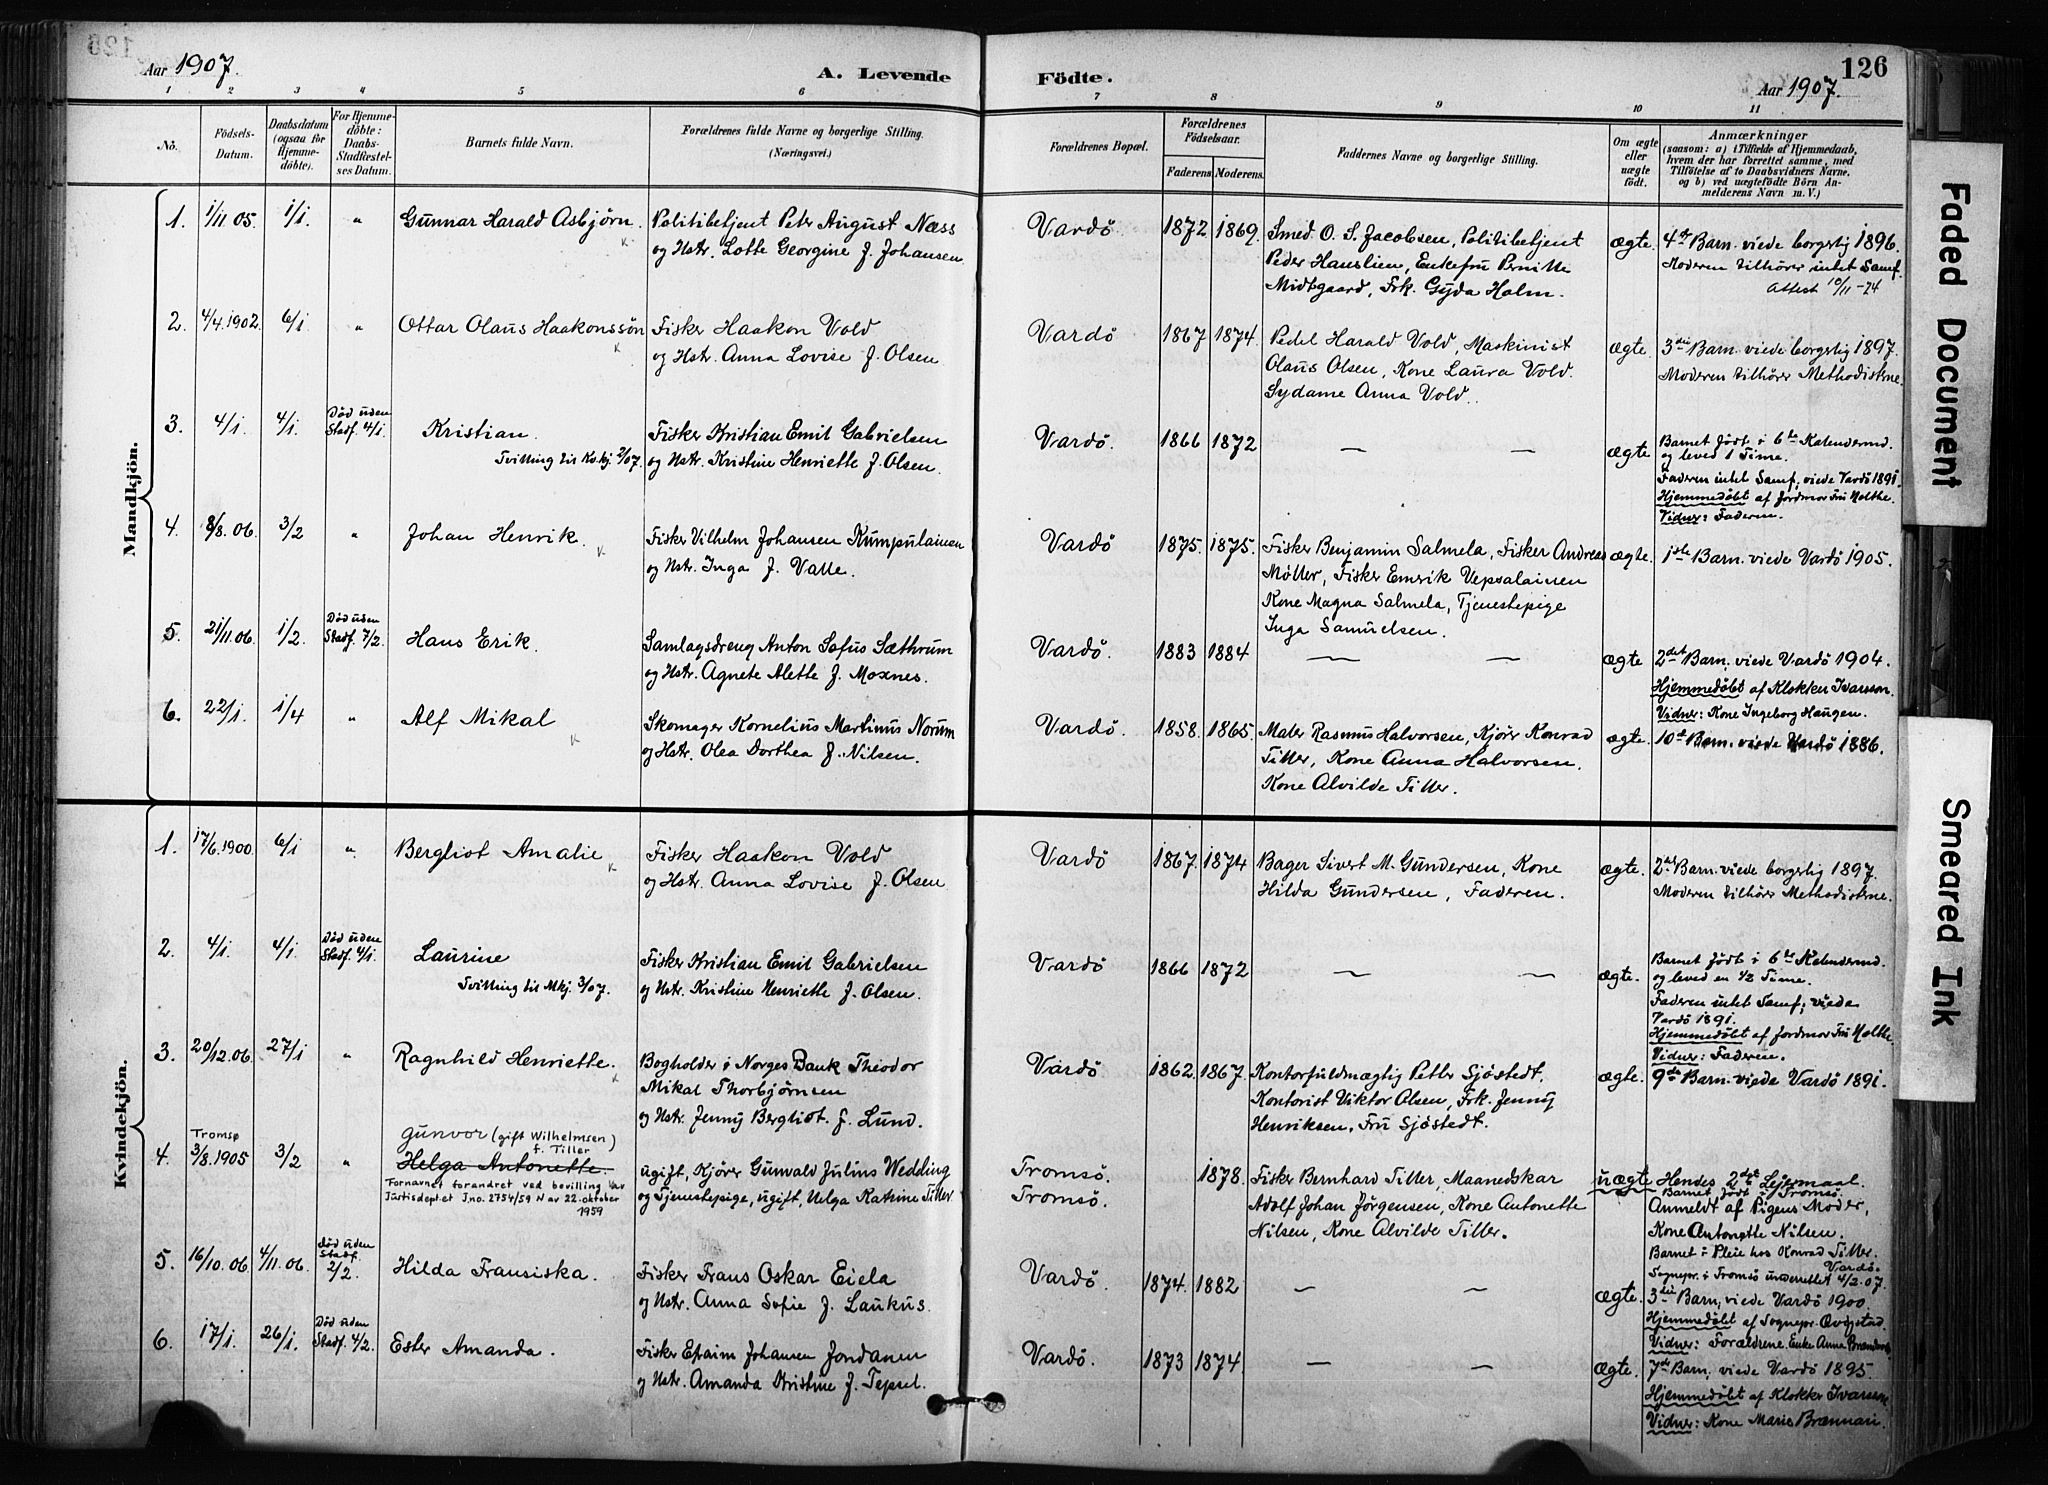 Aar 1907.
A. Levende Födte.
126
Aar 1907.
1 2 3 4 5 6 7 8 9 10 11
No.
Födsels-Datum.
Daabsdatum (ogsaa for Hjemmedöbte).
For Hjemmedöbte: Daabs-Stadfæstelses Datum.
Barnets fulde Navn.
Forældrenes fulde Navne og borgerlige Stilling. (Næringsvei.)
Forældrenes Bopæl.
Forældrenes Födselsaar.
Faderens. Moderens.
Faddernes Navne og borgerlige Stilling.
Om ægte eller uægte födt.
Anmærkninger
(saasom: a) i Tilfælde af Hjemmedaab, hvem der har forrettet samme, med Tilföielse af to Daabsvidners Navne, og b) ved uægtefödte Börn Anmelderens Navn m. V.)
Mandkjön.
1. 1/11 05. 1/1. " Gunnar Harald Asbjörn. Politibetjent Peter August Næss Vardö 1872 1869. Smed O. S. Jacobsen, Politibetjent ægte. 4de Barn. viede borgerlig 1896.
og Hstr. Lotte Georgine f. Johansen. Peder Hanslien, Enkefru Pernille Moderen tilhører intet Samf.
Midtgaard, Frk. Gyda Holm. Attest 10/11-74
2. 4/4.1902. 6/1 " Ottar Olaus Haakonssön Fisker Haakon Vold Vardö 1867 1874. Pedel Harald Vold, Maskinist ægte. 3die Barn. viede borgerlig 1897.
og Hstr. Anna Lovise f. Olsen Olaus Olsen, Kone Laura Vold. Moderen tilhører Methodisterne.
Sydame Anna Vold.
3. 4/1. 4/1. Död uden Stadf. 4/1. Kristian. Fisker Kristian Emil Gabrielsen Vardö. 1866 1872 — — ægte Barnet födt i 6te Kalendermd.
Tvilling til Kvkj. 2/07. og Hstr. Kristine Henriette f. Olsen. og leved 1 Time.
Faderen intet Samf; viede Vardö 1891.
Hjemmedöbt af Jordmor Fru Molthe.
Vidner: Faderen.
4. 8/8. 06. 3/2 " Johan Henrik. Fisker Vilhelm Johansen Kumpulainen Vardö 1875. 1875. Fisker Benjamin Salmela, Fisker Andreas ægte. 1ste Barn. viede Vardö 1905.
og Hstr. Inga f. Valle. Möller, Fisker Emrik Vepsalainen
Kone Magna Salmela, Tjenestepige
Inga Samuelsen.
5. 21/11.06. 1/2. Död uden Stadf. 7/2. Hans Erik. Samlagsdreng Anton Sofus Sæthrum Vardö. 1883 1884 — — ægte 2det Barn. viede Vardö 1904.
og Hstr. Agnete Alette f. Moxnes. Hjemmedöbt af Klokker Ivarsson.
Vidner: Kone Ingeborg Haugen.
6. 22/1. 1/4 " Alf Mikal Skomager Kornelius Martinus Norum Vardö. 1858. 1865. Maler Rasmus Halvorsen, Kjörer Konrad ægte. 10de Barn. viede Vardö 1886.
og Hstr. Olea Dorthea f. Nilsen. Tiller, Kone Anna Halvorsen.
Kone Alvilde Tiller.
Kvindekjön.
1. 17/6.1900. 6/1 " Bergliot Amalie Fisker Haakon Vold Vardö 1867. 1874 Bager Sivert M. Gundersen, Kone ægte. 2det Barn. viede borgerlig 1897.
og Hstr. Anna Lovise f. Olsen Hilda Gundersen, Faderen. Moderen tilhører Methodisterne.
2. 4/1. 4/1. Död uden Stadf. 4/1. Laurine Fisker Kristian Emil Gabrielsen Vardö 1866 1872 — — ægte. Barnet födt i 6te Kalendermd.
Tvilling til Mkj. 3/07. og Hstr. Kristine Henriette f. Olsen. og leved en 1/2 Time.
Faderen intet Samf; viede
Vardö 1891.
Hjemmedöbt af Jordmor Fru Molthe.
Vidner: Faderen.
3. 20/12.06. 27/1 " Ragnhild Henriette. Bogholder i Norges Bank Theodor Vardö 1862. 1867. Kontorfuldmægtig Petter Sjöstedt. ægte. 9de Barn. viede Vardö 1891.
Mikal Thorbjörnsen Kontorist Viktor Olsen, Frk. Jenny
og Hstr. Jenny Bergliot f. Lund. Henriksen, Fru Sjöstedt.
Tromsø gunvor (gift Wilhelmsen) f. Tiller
4. 3/8.1905 3/2 " Helga Antonette. ugift, Kjörer Gunvald Julius Wedding Tromsö. 1878. Fisker Bernhard Tiller, Maanedskar uægte Hendes 2det Leiermaal.
Fornavnet forandret ved bevilling av og Tjenestepige, ugift, Helga Katrine Tiller Tromsö. Adolf Johan Jörgensen, Kone Antonette Barnet födt i Tromsö.
Justisdept.et J.no. 2754/59 N av 22. oktober 1959 Nilsen, Kone Alvilde Tiller. Anmeldt af Pigens Moder,
Kone Antonette Nilsen.
Barnet i Pleie hos Konrad Tiller. Vardö.
Sognepr. i Tromsö underrettet 4/2.07.
5. 16/10.06. 4/11.06. Död uden Stadf. 2/2. Hilda Fransiska. Fisker Frans Oskar Eiela Vardö. 1874. 1882 — — ægte. 3die Barn, viede Vardö 1900.
og Hstr. Anna Sofie f. Laukus. Hjemmedöbt af Sognepr. Qvigstad.
Vidner: Forældrene, Enke Anna
6. 17/1. 26/1. Död uden Stadf. 4/2. Ester Amanda. Fisker Efraim Johansen Jondanen Vardö. 1873 1874. — — ægte. 7de Barn. viede Vardö 1895.
og Hstr. Amanda Kristine f. Teppel. Hjemmedöbt af Klokker Ivarsson
Vidner: Kone Maria Brænnari.
Faded Document
Smeared Ink